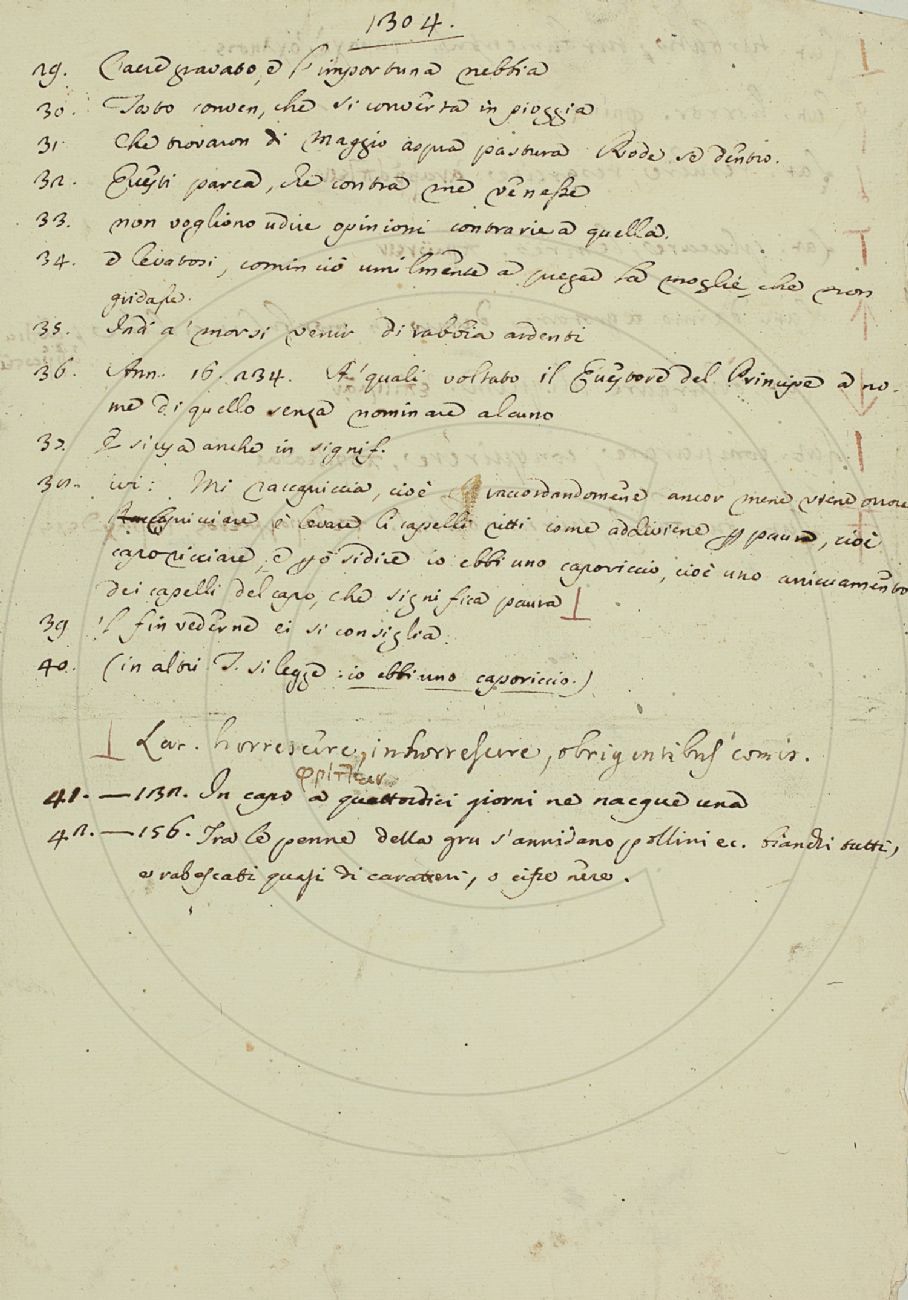 1304.
29. L'aere gravato, e l'importuna nebbia
30. Tosto conven, che si converta in pioggia
31. Che trovaron di Maggio aspra pastura Rode se dentro.
32. Questi parea, che contra me venesse
33. non vogliono udire opinioni contrarie a quella.
34. e levatosi, cominciò umilmente a pregar la moglie, che non
gridasse.
35. Indi a' morsi venir di rabbia ardenti
36. Ann. 16. 234. A' quali voltato il Questore del Principe a no-
me di quello senza nominare alcuno
37. E si usa anche in signif.
38. ivi: Mi raccapriccia, cioè raccordandomene ancor mene viene orrore
capricciare è levare li capelli ritti come addiviene p paura, cioè
caporicciare, e pò si dice io ebbi uno caporiccio, cioè uno arricciamento
dei capelli del capo, che significa paura
39 'l fin vederne ei si consiglia
40. (in altri T. si legge: io ebbi uno caporiccio.)
Lat. horrescere, inhorrescere, obrigentibus comis.
φρίττειν
41. — 132. In capo a quattordici giorni ne nacque una
42. — 156. Tra le penne della gru s'annidano pollini ec. bianchi tutti,
e rabescati quasi di caratteri, o cifre nere.